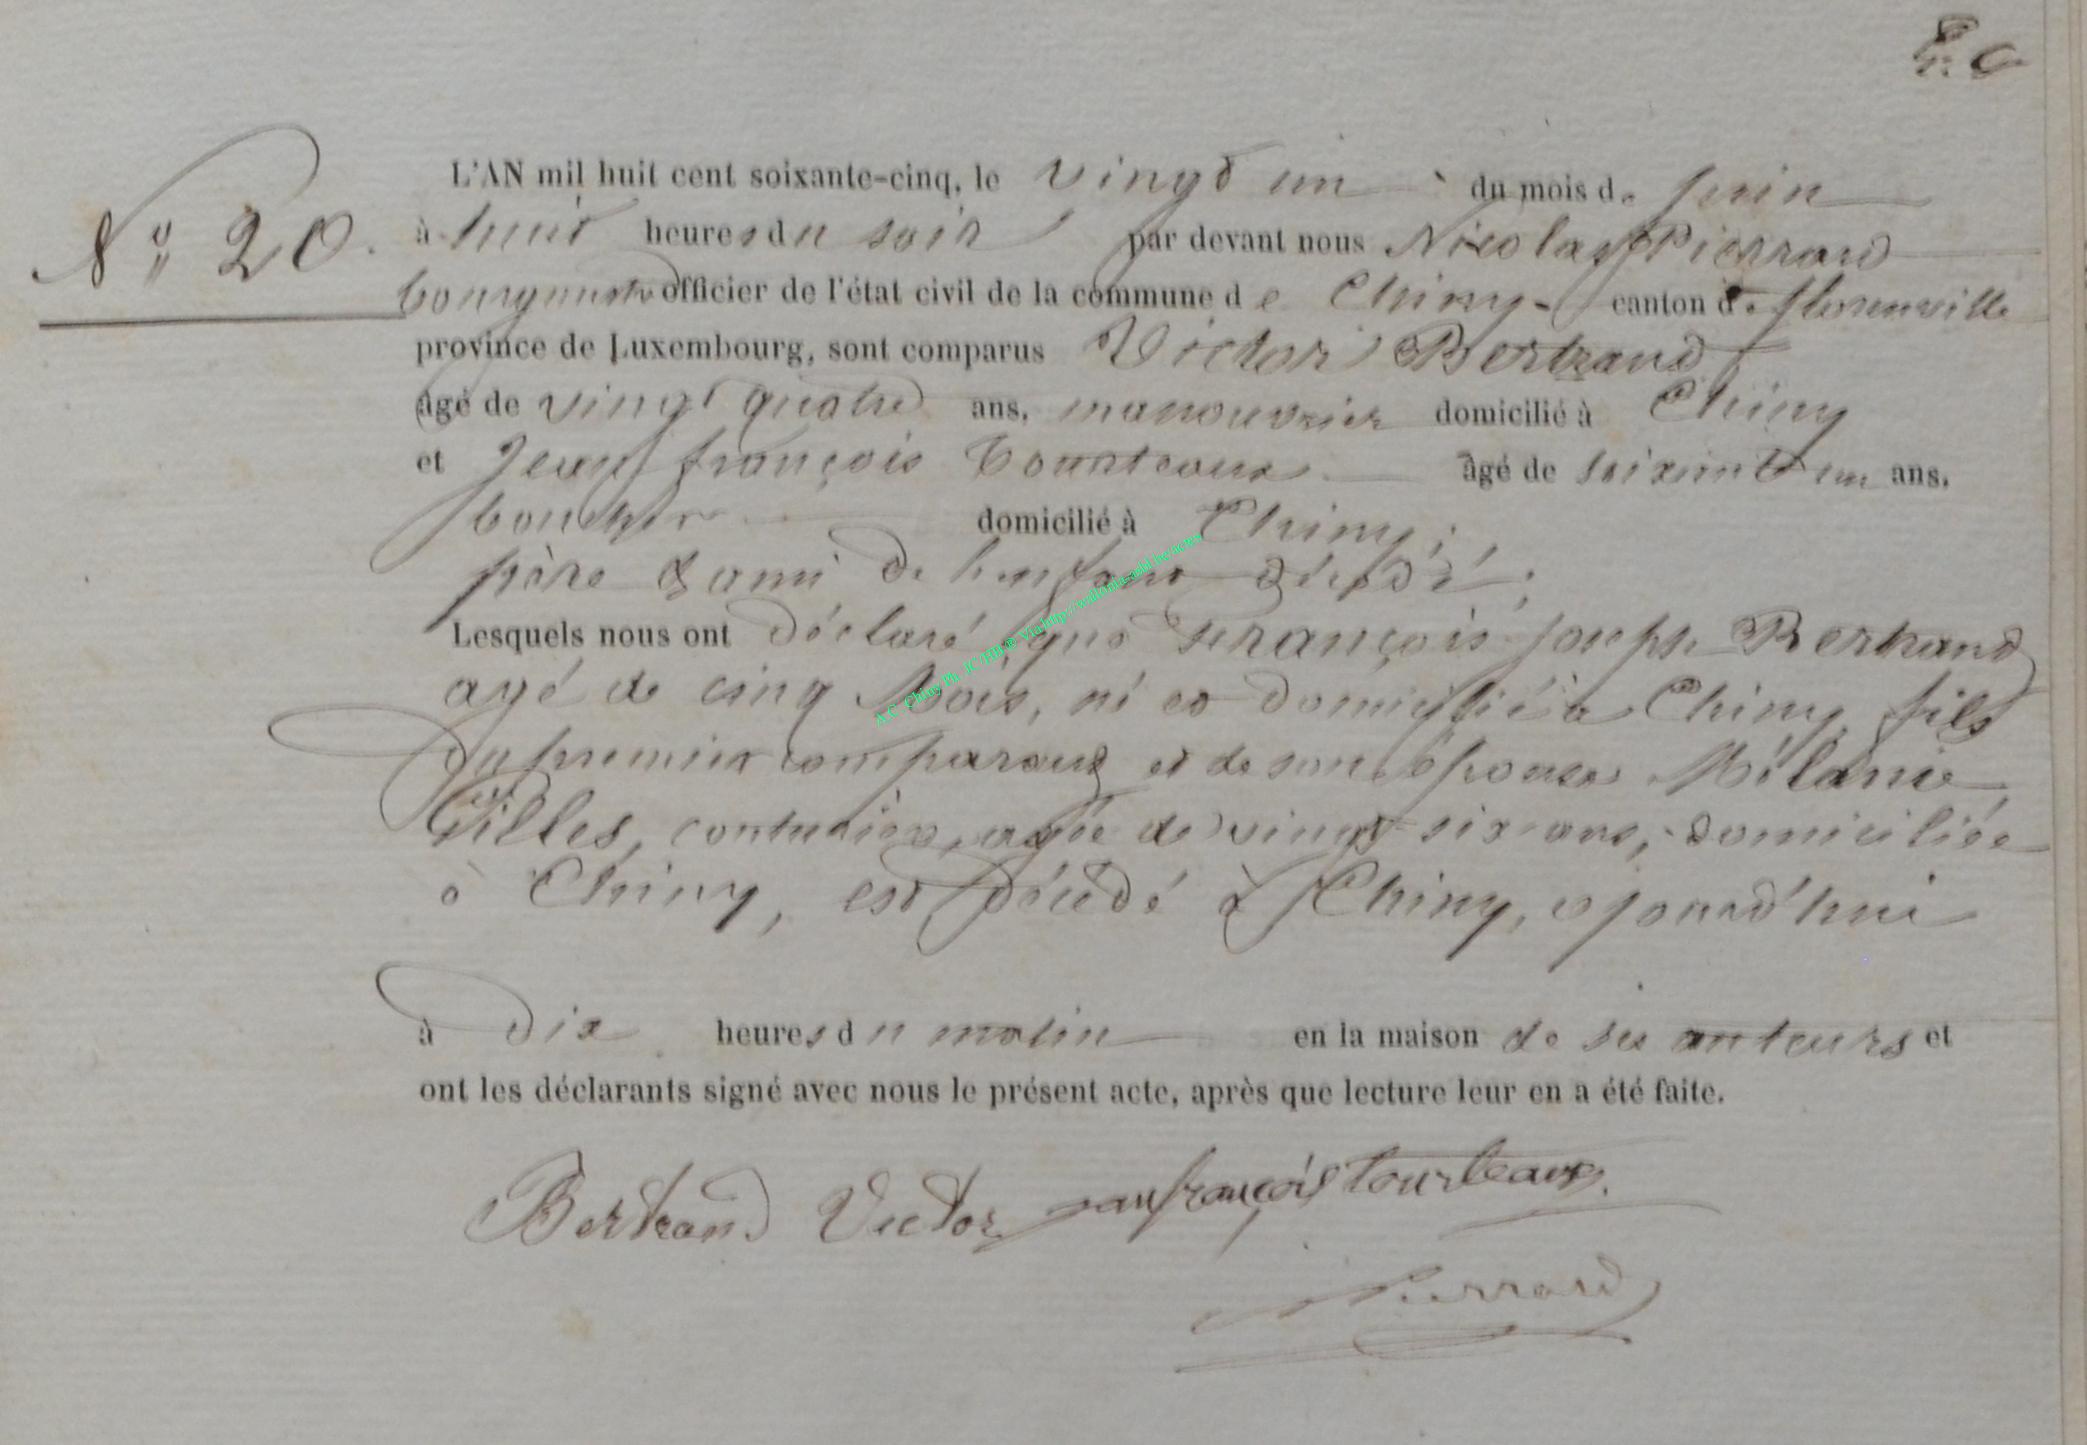 N° 20.
L'AN mil huit cent soixante-cinq, le vingt un du mois de juin
à huit heures du soir par devant nous Nicolas Pierrard
bourgmestre officier de l'état civil de la commune de Chiny canton de florenville
province de Luxembourg, sont comparus Victor Bertrand
âgé de vingt quatre ans, manouvrier domicilié à Chiny
et Jean françois Tourteaux âgé de soixante un ans,
domicilié à Chiny;
père & ami de l'enfant décédé;
Lesquels nous ont déclaré que François joseph Bertrand
agé de cinq Mois, né et domicilié à Chiny, fils
du premier comparant et de son épouse Mélanie
Gilles, couturière, agée de vingt six ans, domiciliée
à Chiny, est décédé à Chiny, ajourd'hui
à dix heures du matin en la maison de ses auteurs et
ont les déclarants signé avec nous le présent acte, après que lecture leur en a été faite.
Bertrand Victor Jean françois tourteaux.
Pierrard
A.C Chiny Ph JC HH ® Via http://wallonia-asbl.be/actes